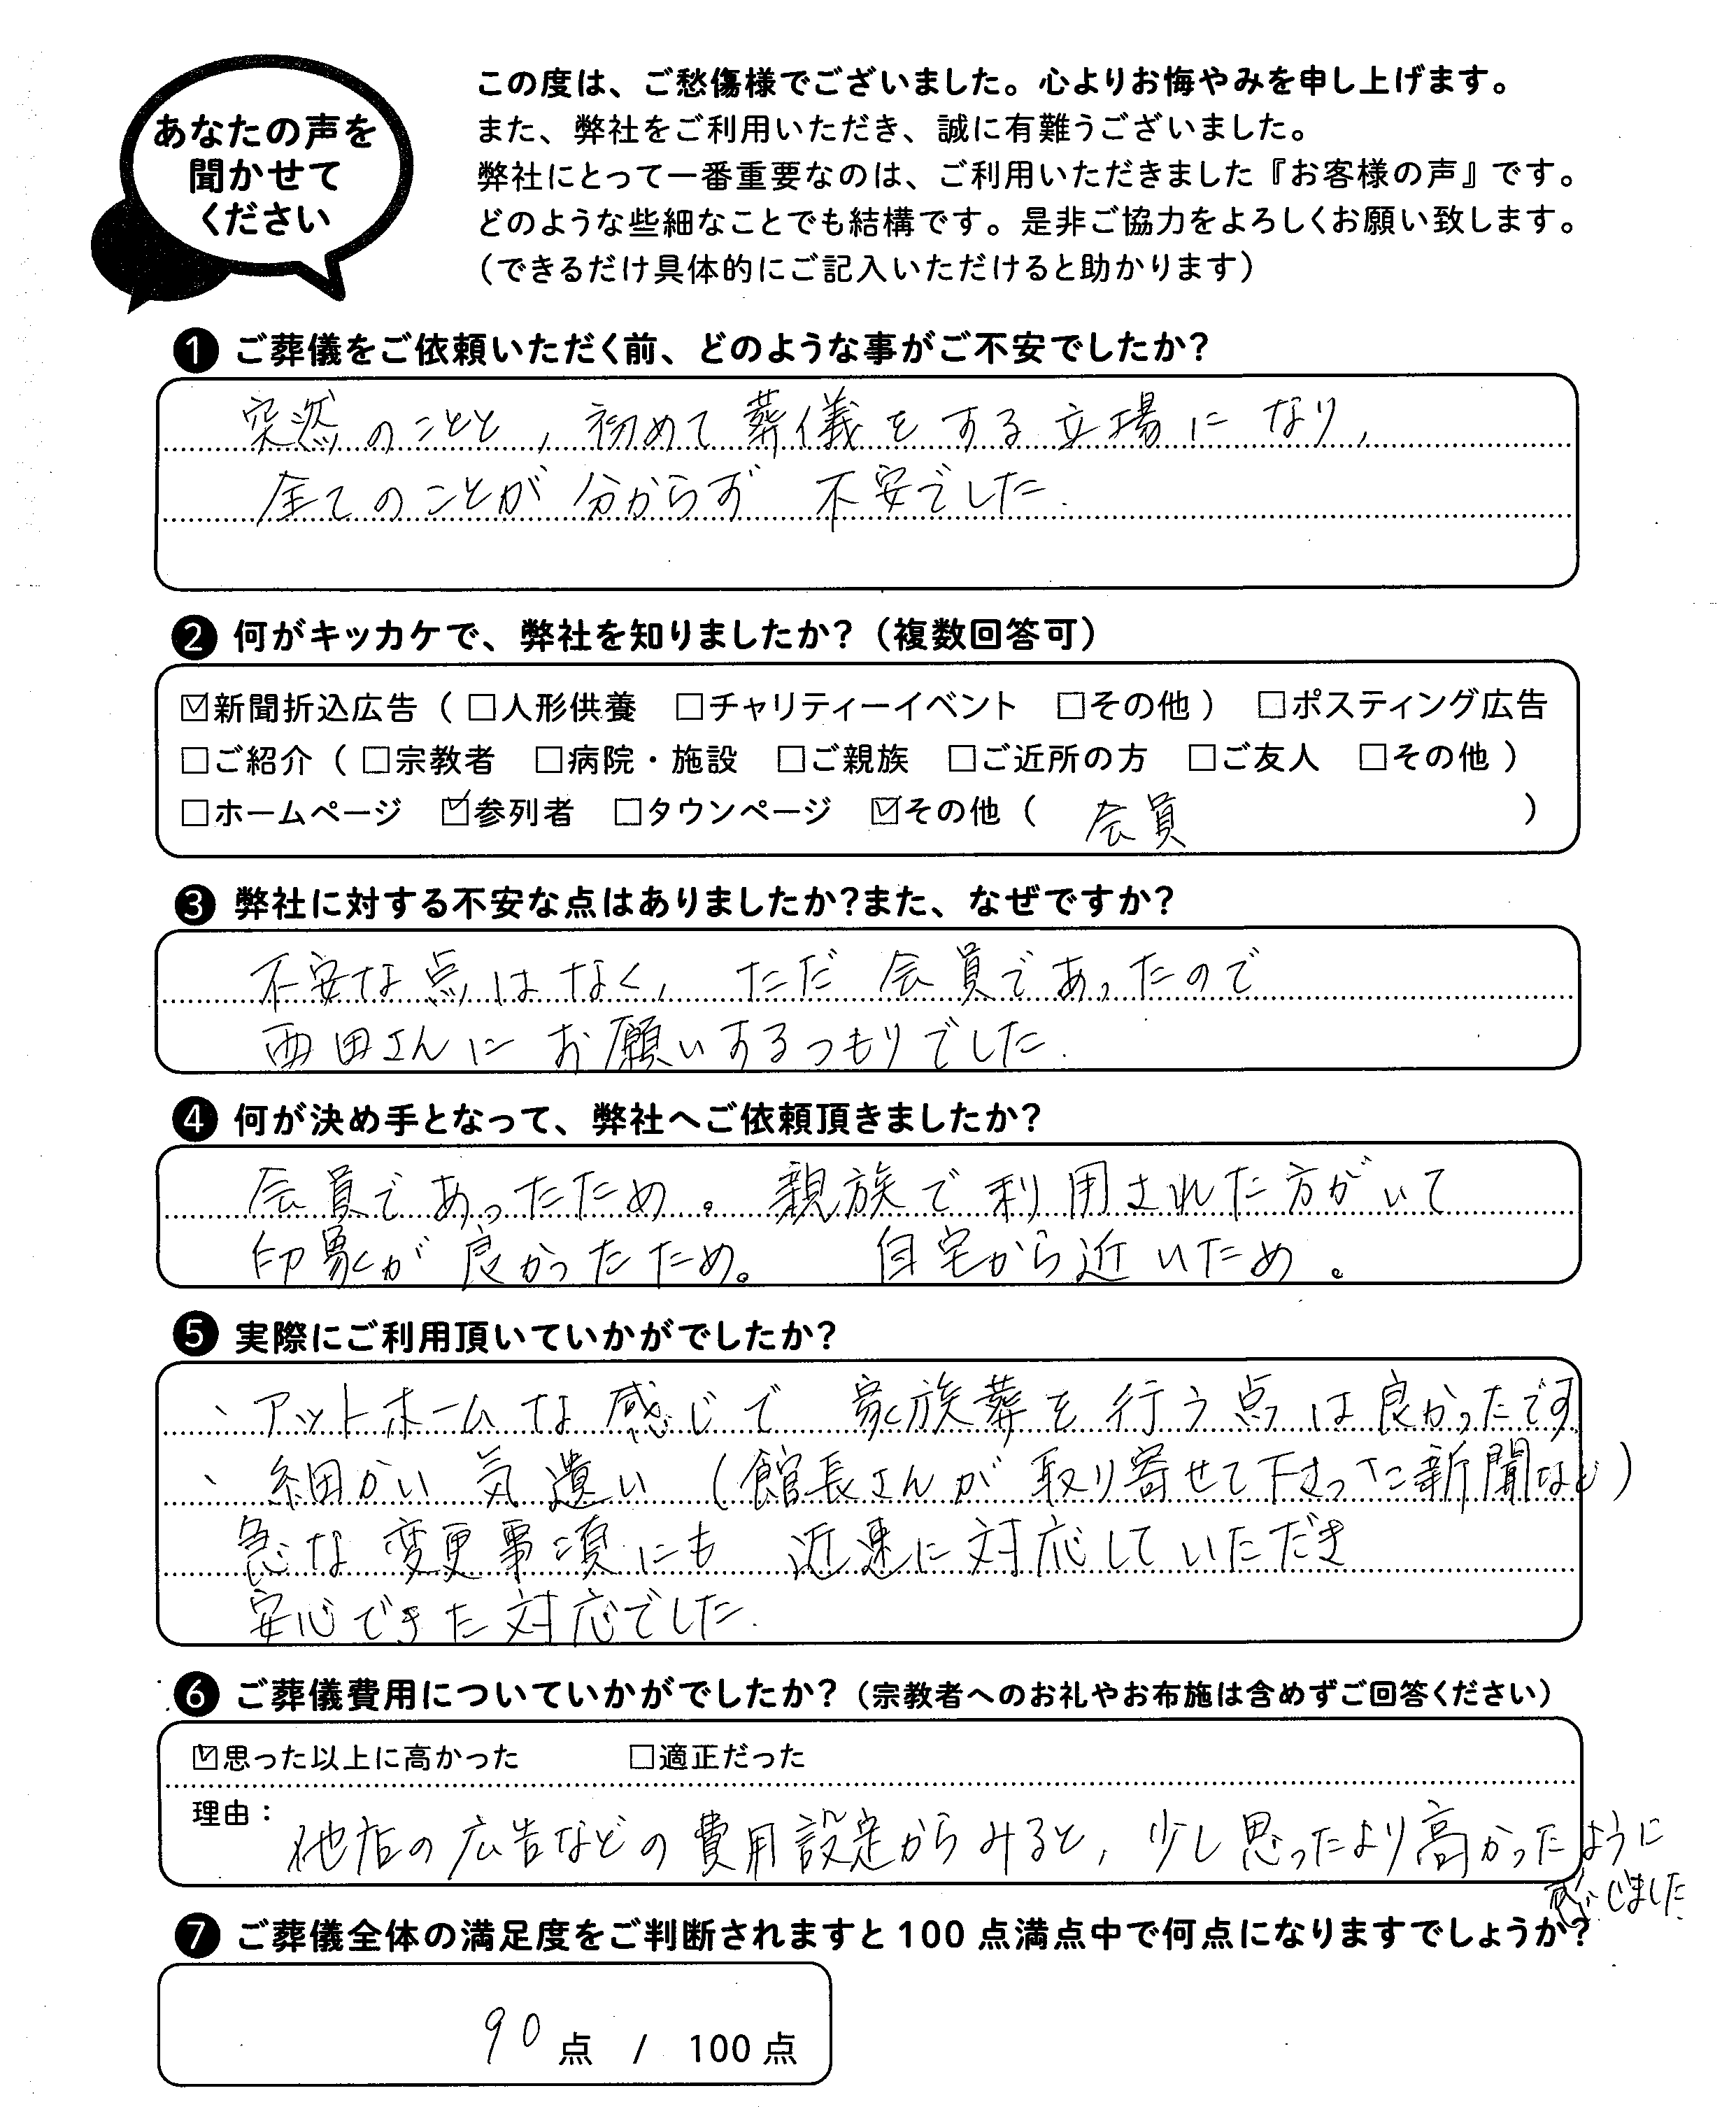 あなたの声を
聞かせて
ください
この度は、ご愁傷様でございました。心よりお悔やみを申し上げます。
また、弊社をご利用いただき、誠に有難うございました。
弊社にとって一番重要なのは、ご利用いただきました『お客様の声』です。
どのような些細なことでも結構です。是非ご協力をよろしくお願い致します。
（できるだけ具体的にご記入いただけると助かります）
❶ ご葬儀をご依頼いただく前、どのような事がご不安でしたか？
突然のことと、初めて葬儀をする立場になり、
全てのことが分からず 不安でした.
❷ 何がキッカケで、弊社を知りましたか？（複数回答可）
☑新聞折込広告（ □人形供養 □チャリティーイベント □その他 ） □ポスティング広告
□ご紹介（ □宗教者 □病院・施設 □ご親族 □ご近所の方 □ご友人 □その他 ）
□ホームページ ☑参列者 □タウンページ ☑その他（ 会員 ）
❸ 弊社に対する不安な点はありましたか？また、なぜですか？
不安な点はなく、ただ 会員であったので
西田さんに お願いするつもりでした.
❹ 何が決め手となって、弊社へご依頼頂きましたか？
会員であったため。親族で利用された方がいて
印象が良かったため。 自宅から近いため。
❺ 実際にご利用頂いていかがでしたか？
、アットホームな感じで 家族葬を行う点は良かったです
、細かい気遣い（館長さんが取り寄せて下さった新聞など）
急な変更事項にも 迅速に対応していただき
安心できた対応でした.
❻ ご葬儀費用についていかがでしたか？（宗教者へのお礼やお布施は含めずご回答ください）
☑思った以上に高かった □適正だった
理由：
他店の広告などの費用設定からみると、少し思ったより高かったように
感じました
❼ ご葬儀全体の満足度をご判断されますと100点満点中で何点になりますでしょうか？
90点 / 100点